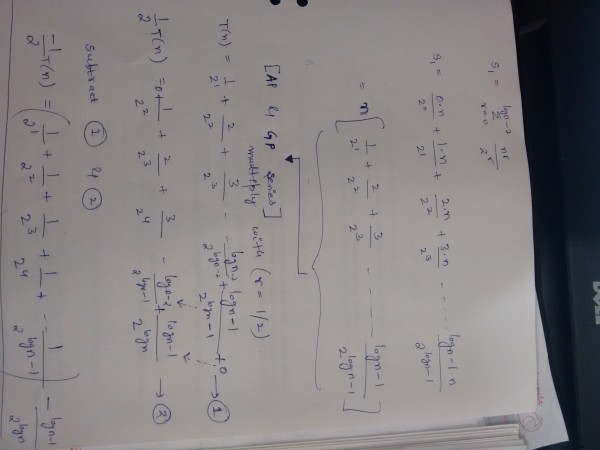 S₁ = Σ_{r=0}^{logn-2} nr/2^r
S₁ = 0.n/2⁰ + 1.n/2¹ + 2.n/2² + 3.n/2³ - - - - - logn-1.n/2^{logn-1}
= n [ 1/2¹ + 2/2² + 3/2³ - - - - - - logn-1/2^{logn-1} ]
[AP & GP series] with (r = 1/2)
multiply
T(n) = 1/2¹ + 2/2² + 3/2³ - - logn-2/2^{logn-2} + logn-1/2^{logn-1} + 0 → ①
1/2 T(n) = 0 + 1/2² + 2/2³ + 3/2⁴ - logn-2/2^{logn-1} + logn-1/2^{logn} → ②
Subtract ① & ②
-1/2 T(n) = ( 1/2¹ + 1/2² + 1/2³ + 1/2⁴ + - - 1/2^{logn-1} ) - logn-1/2^{logn}